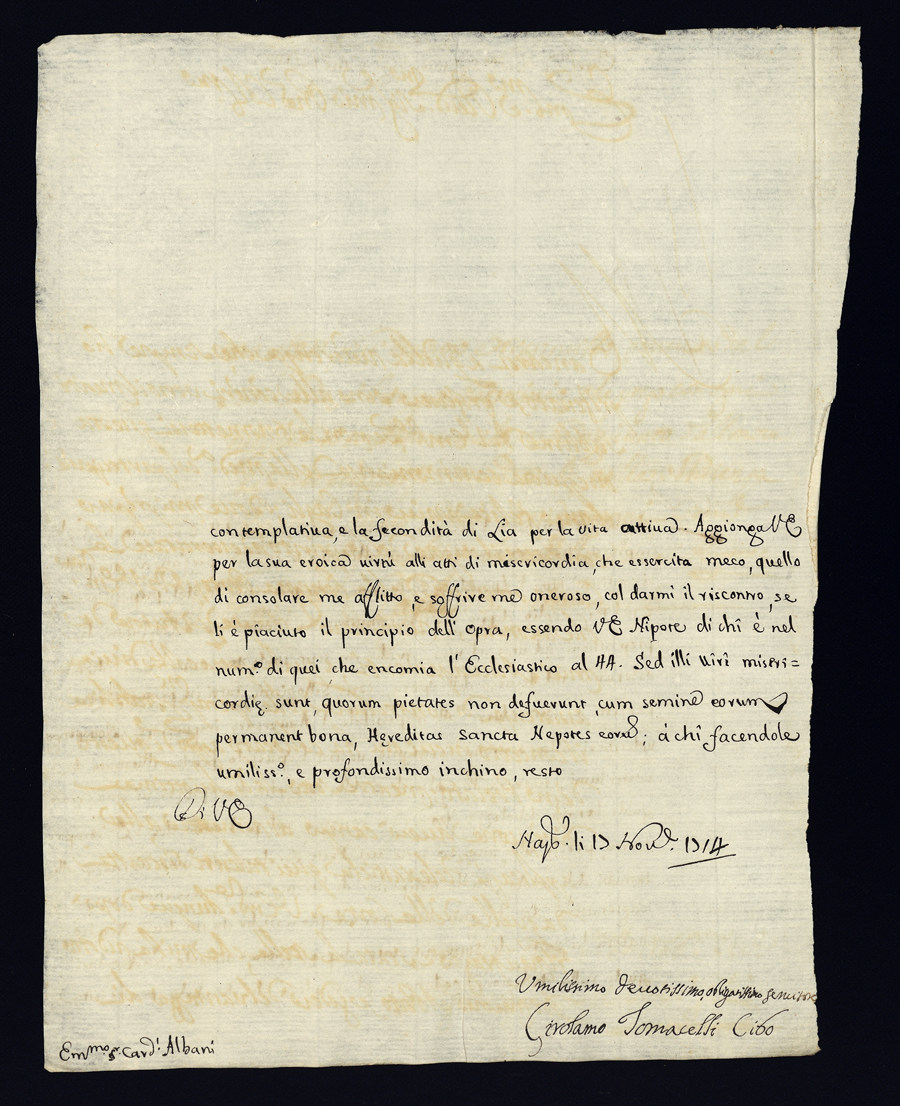 contemplatiua, e la fecondità di Lia per la vita attiua. Aggionga VE
per la sua eroica uirtù alli atti di misericordia, che essercita meco, quello
di consolare me afflitto, e soffrire me oneroso, col darmi il riscontro, se
li é piaciuto il principio dell' opra, essendo VE Nipote di chi è nel
num.o di quei, che encomia l' Ecclesiastico al 44. Sed illi uiri miseri=
cordię sunt, quorum pietates non defuerunt, cum semine eorum
permanent bona, Hęreditas sancta Nepotes eorum; à chi facendole
umiliss.o, e profondissimo inchino, resto
Di VE
Nap. li 13 Nov.e 1714
Vmilissimo deuotissimo, obligatissimo seruitore
Girolamo Tomacelli Cibo
Em.mo Sr. Card.l Albani